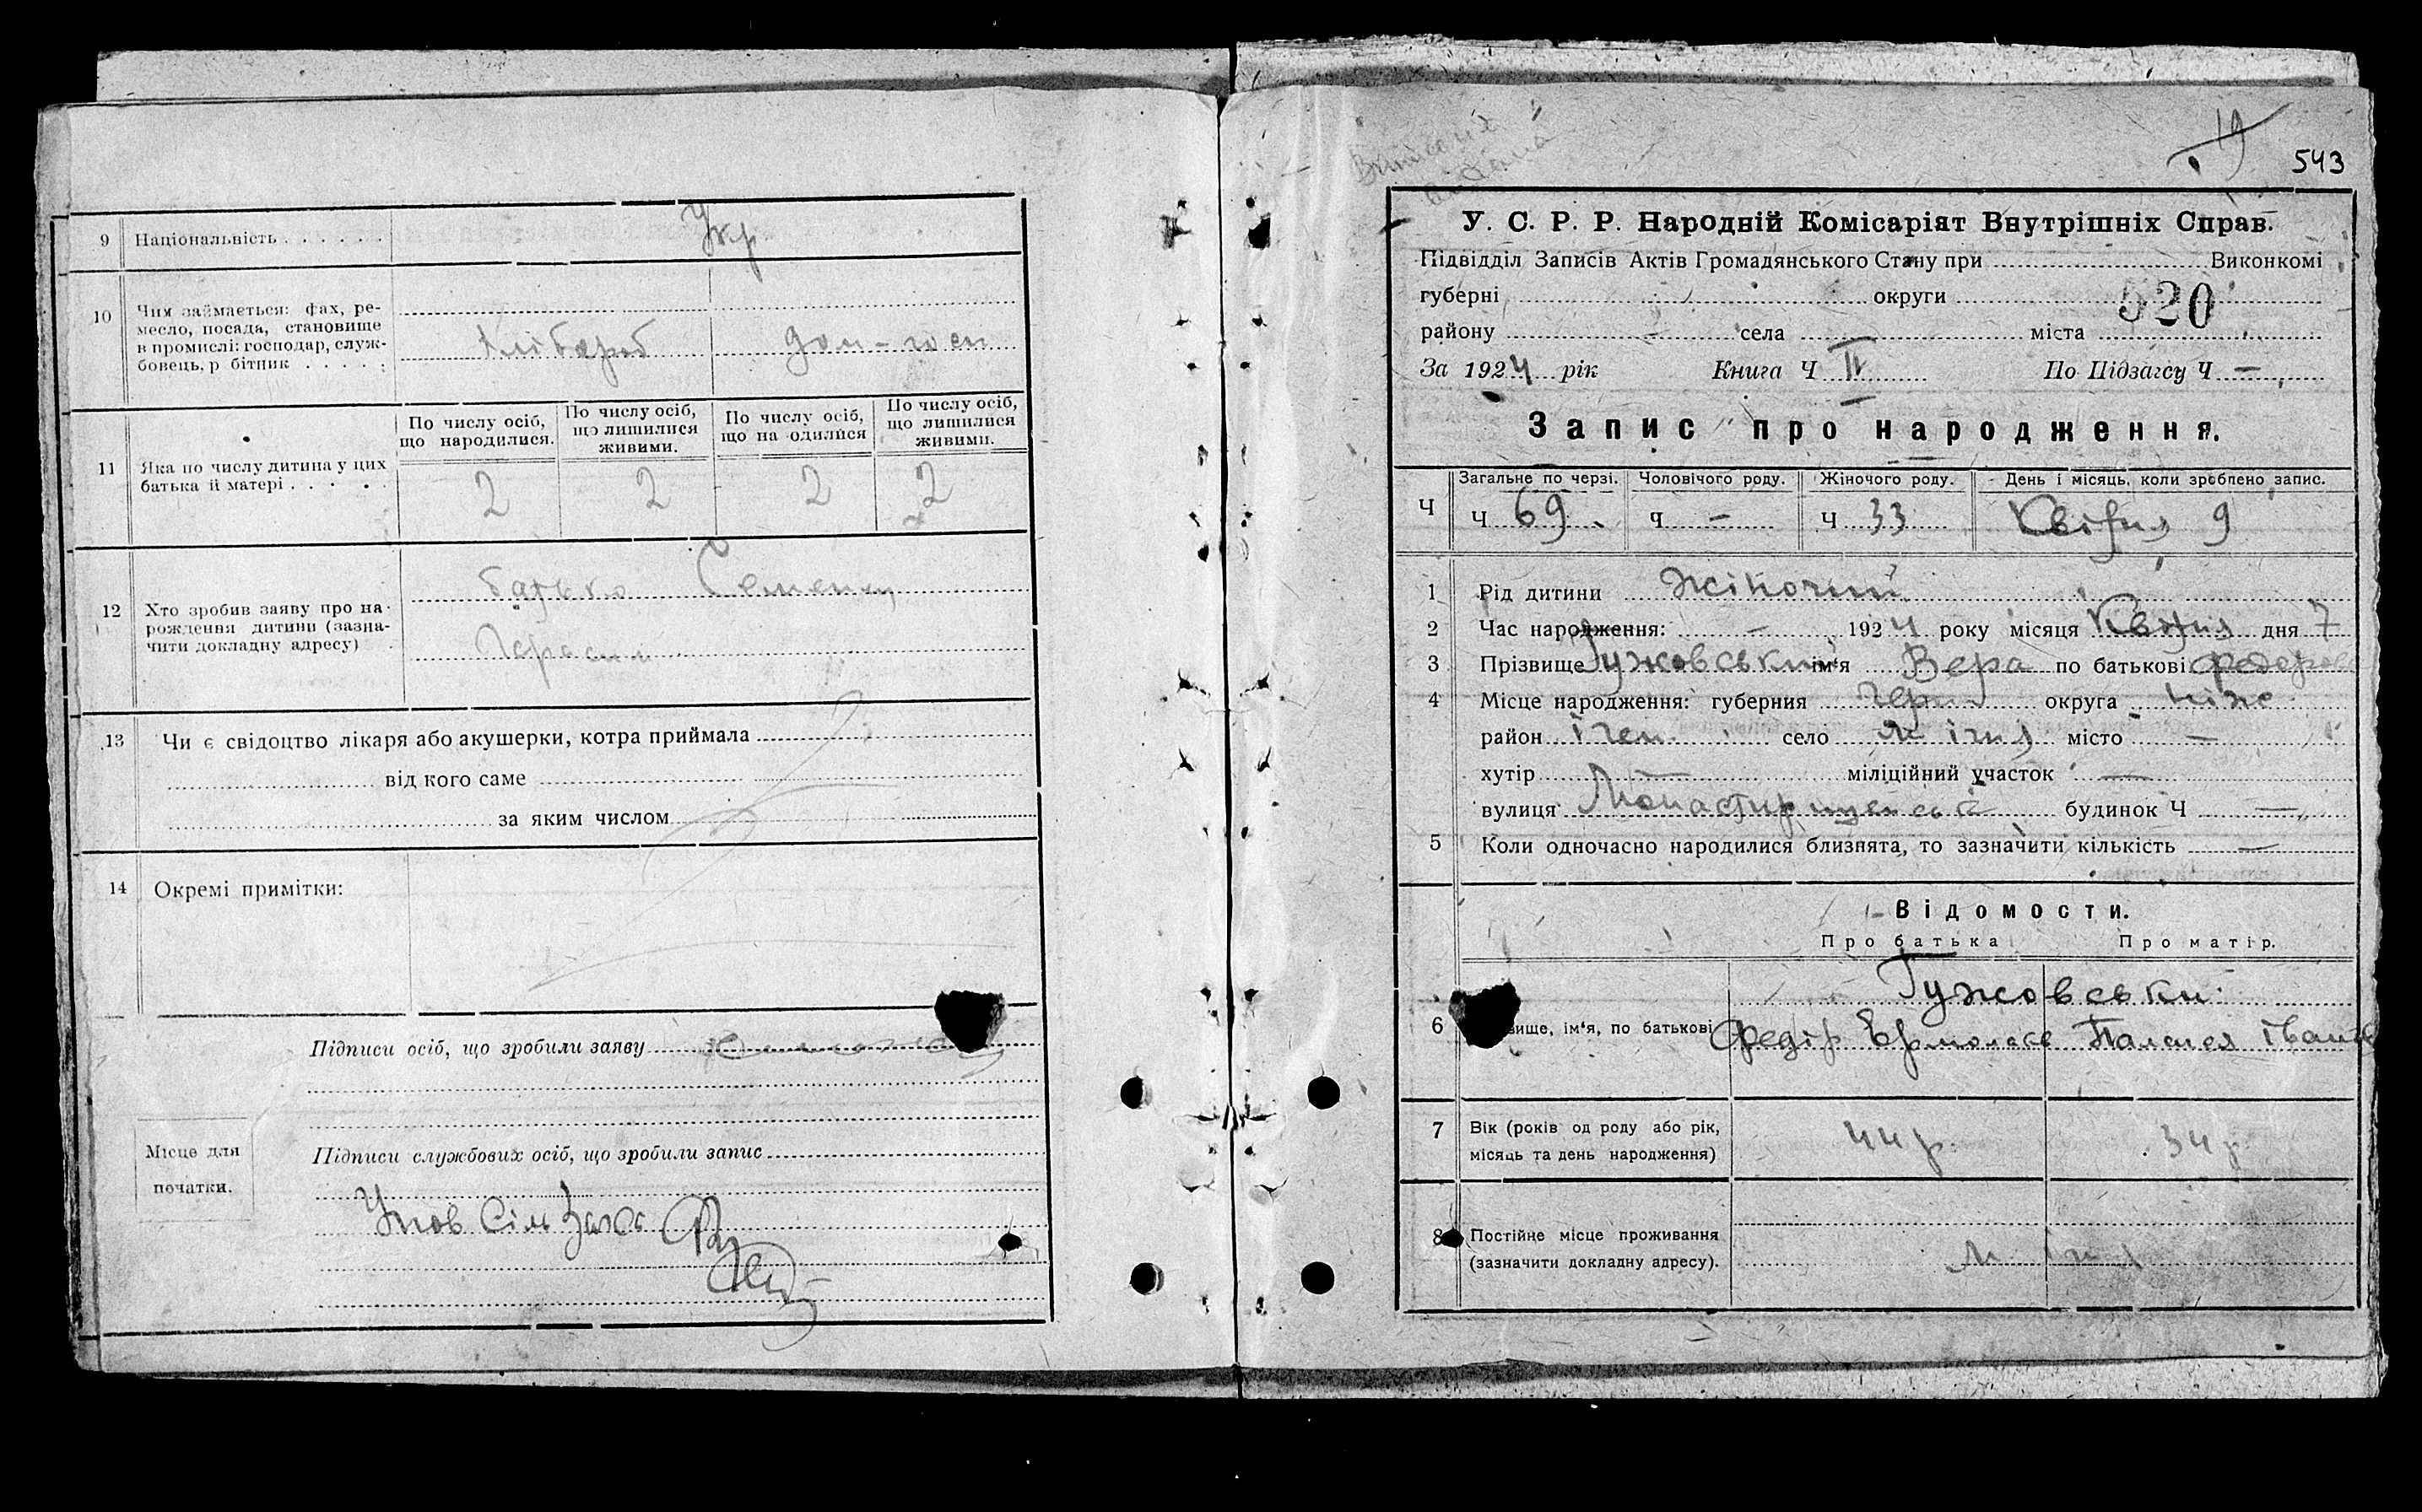 9 Національність . . . . . . Укр.
10 Чим займається: фах, ре-
месло, посада, становище
в промислі: господар, служ-
бовець, р бітник . . . . .
Хлібороб дом-госп
11 Яка по числу дитина у цих
батька й матері . . . . .
По числу осіб,
що народилися.
По числу осіб,
що лишилися
живими.
По числу осіб,
що на одилися
По числу осіб,
що лишилися
живими.
2 2 2 2
12 Хто зробив заяву про на-
рождення дитини (зазна-
чити докладну адресу)
батько Семенец
Герасим
13 Чи є свідоцтво лікаря або акушерки, котра приймала
від кого саме
за яким числом
14 Окремі примітки:
Підписи осіб, що зробили заяву
Місце для
печатки.
Підписи службових осіб, що зробили запис
19
543
У. С. Р. Р. Народній Комісаріят Внутрішніх Справ.
Підвідділ Записів Актів Громадянського Стану при Виконкомі
губерні округи 520
району села міста
За 1924 рік Книга Ч II По Підзагсу Ч —
Запис про народження.
Ч
Загальне по черзі. Чоловічого роду. Жіночого роду. День і місяць, коли зроблено запис.
Ч 69 Ч — Ч 33 Квітня 9
1 Рід дитини Жіночий
2 Час народження: — 1924 року місяця Квітня дня 7
3 Прізвище Гужовський ім'я Вера по батькові Федоров
4 Місце народження: губерния Черн округа Ніже
район Ічен. село м Ічня місто —
хутір — міліційний участок —
вулиця Монастирищенська будинок Ч —
5 Коли одночасно народилися близнята, то зазначити кількість —
Відомости.
Про батька Про матір.
Гужовськи
6 вище, ім'я, по батькові Федір Ермолаєв Палагея Іванів
7 Вік (років од роду або рік,
місяць та день народження)
44 р. 34 р.
8 Постійне місце проживання
(зазначити докладну адресу).
м Ічня